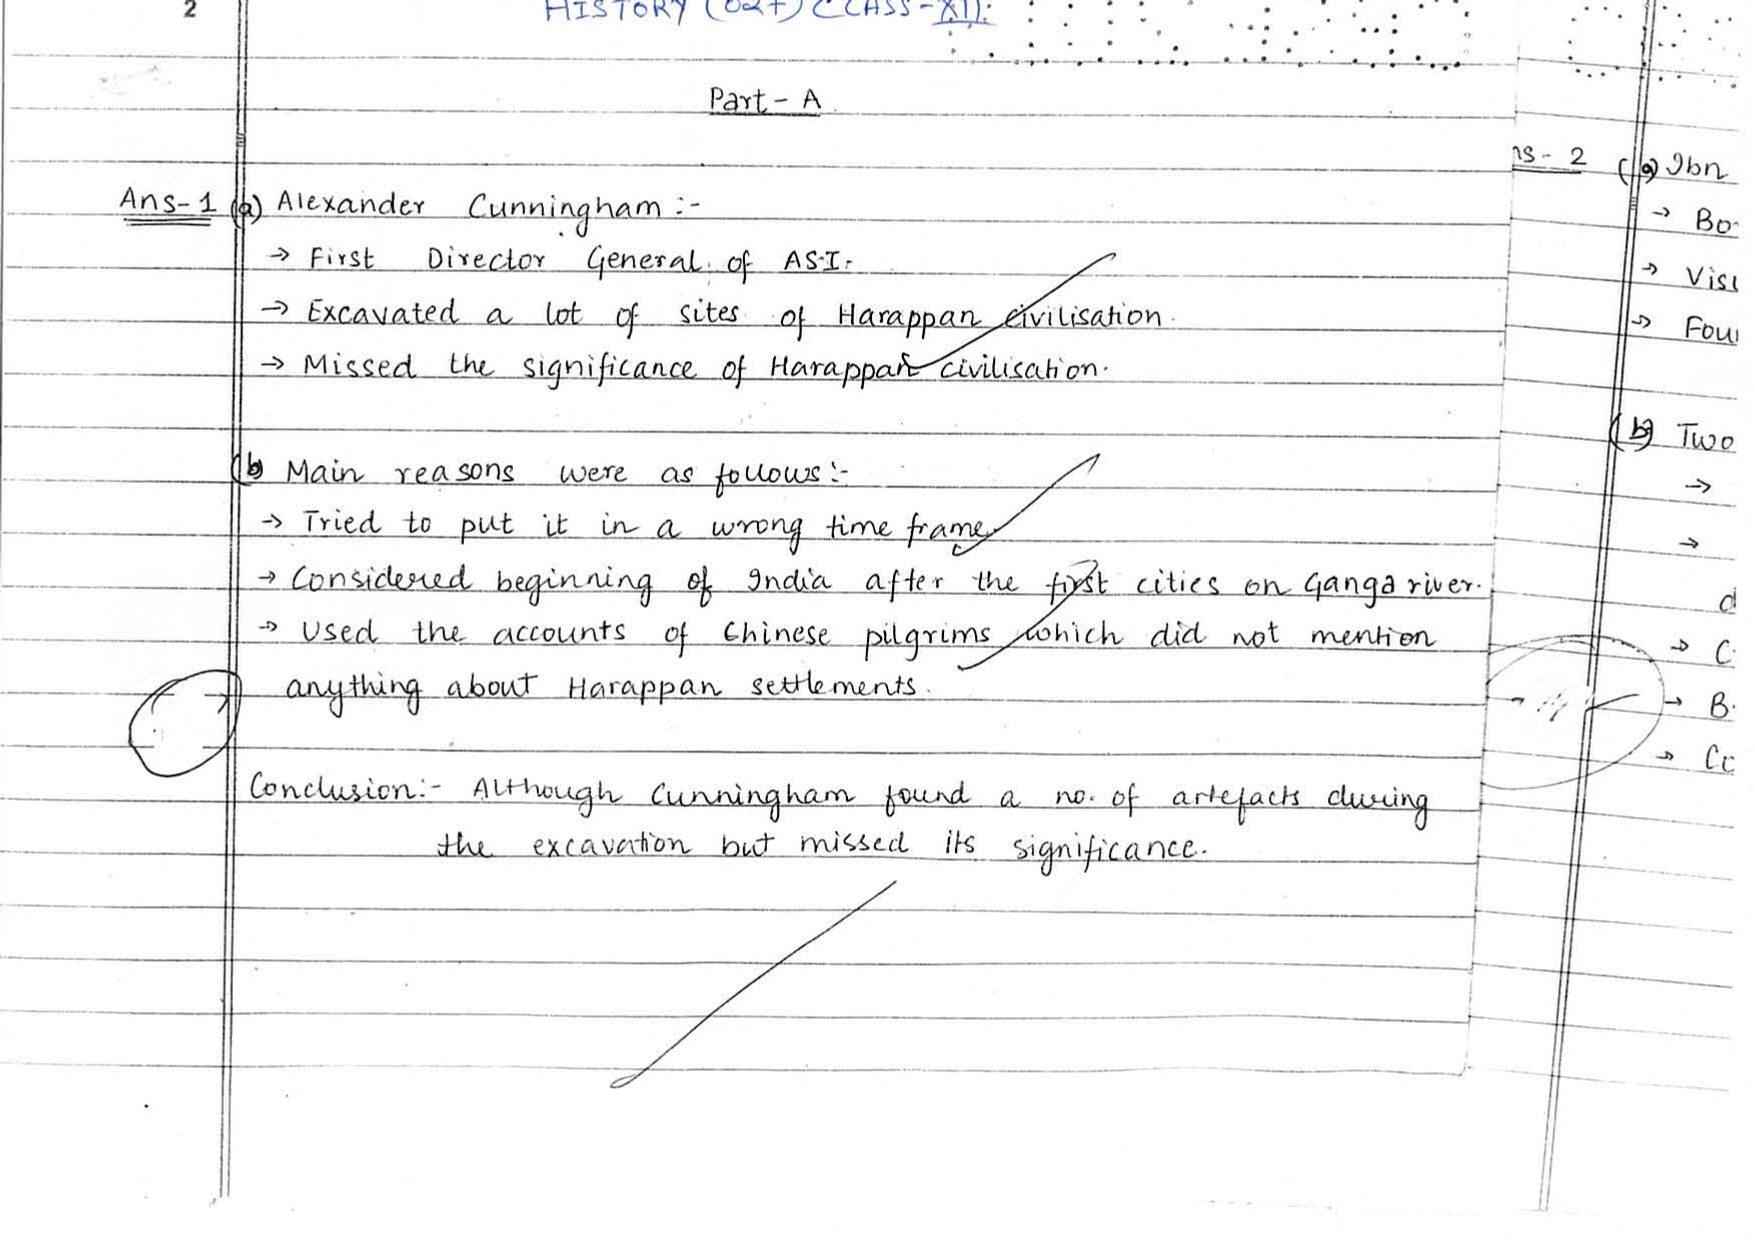 2
HISTORY (027) CLASS-XII
Part - A
Ans-1 (a) Alexander Cunningham :-
→ First Director General of AS.I.
→ Excavated a lot of sites of Harappan civilisation.
→ Missed the significance of Harappan civilisation.
(b) Main reasons were as follows :-
→ Tried to put it in a wrong time frame
→ Considered beginning of India after the first cities on Ganga river.
→ Used the accounts of Chinese pilgrims which did not mention
anything about Harappan settlements.
Conclusion:- Although Cunningham found a no. of artefacts during
the excavation but missed its significance.
ns - 2 (a) Ibn
→ Bo
→ Visi
→ Fou
(b) Two
→
→
d
→ C
→ B
→ Co